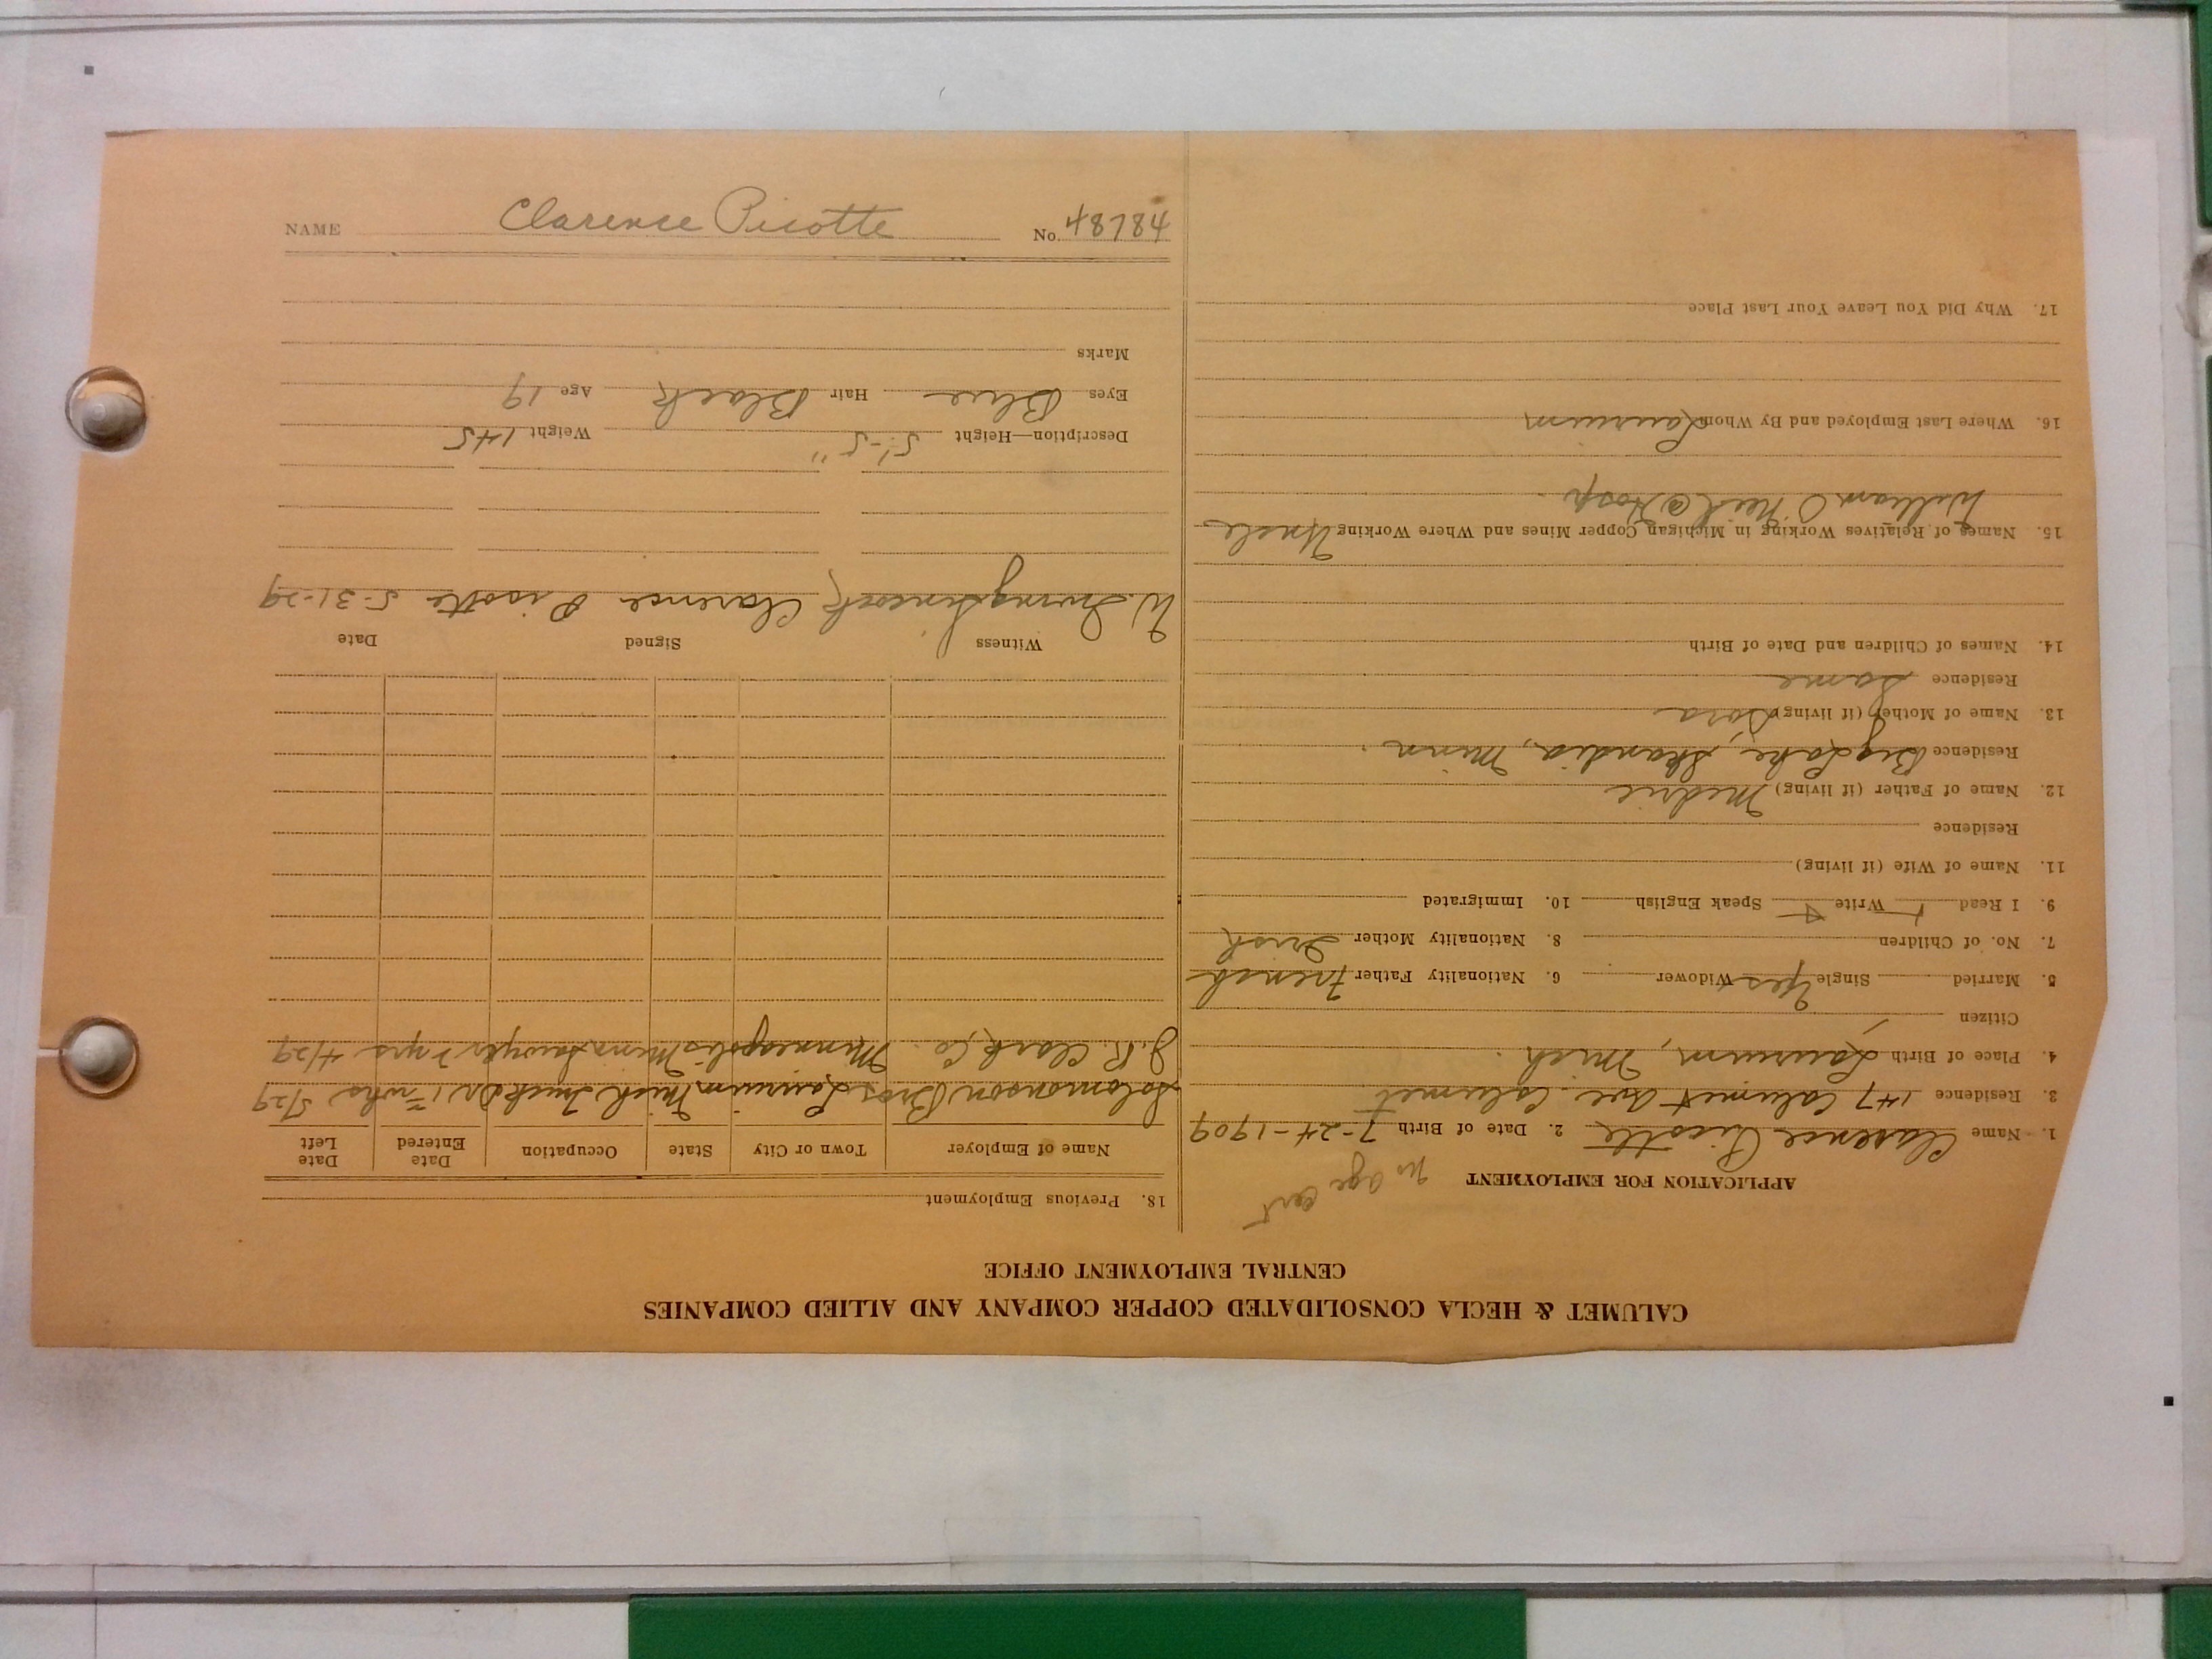 NAME Clarence Picotte No. 48784
CALUMET & HECLA CONSOLIDATED COPPER COMPANY AND ALLIED COMPANIES
CENTRAL EMPLOYMENT OFFICE
APPLICATION FOR EMPLOYMENT no age cert
1. Name Clarence Picotte 2. Date of Birth 7-24-1909
3. Residence 147 Calumet Ave. Calumet
4. Place of Birth Laurium, Mich.
Citizen
5. Married Single Yes Widower 6. Nationality Father French
7. No. of Children 8. Nationality Mother Irish
9. I Read Write Speak English 10. Immigrated
11. Name of Wife (if living)
Residence
12. Name of Father (if living) Medric
Residence Big Lake, Skandia, Minn.
13. Name of Mother (if living) Dora
Residence Same
14. Names of Children and Date of Birth
15. Names of Relatives Working in Michigan Copper Mines and Where Working Uncle
William O'Neil @ Hosp.
16. Where Last Employed and By Whom Laurium
17. Why Did You Leave Your Last Place
18. Previous Employment
Name of Employer Town or City State Occupation Date Entered Date Left
Solomonson Bros Laurium Mich Truck Dr. 1 wks 5/29
J. R. Clark Co. Minneapolis Minn Sawyer 2 yrs 4/29
Witness Signed Date
W. Clarence Picotte 5-31-29
Description—Height 5'-5" Weight 145
Eyes Blue Hair Black Age 19
Marks